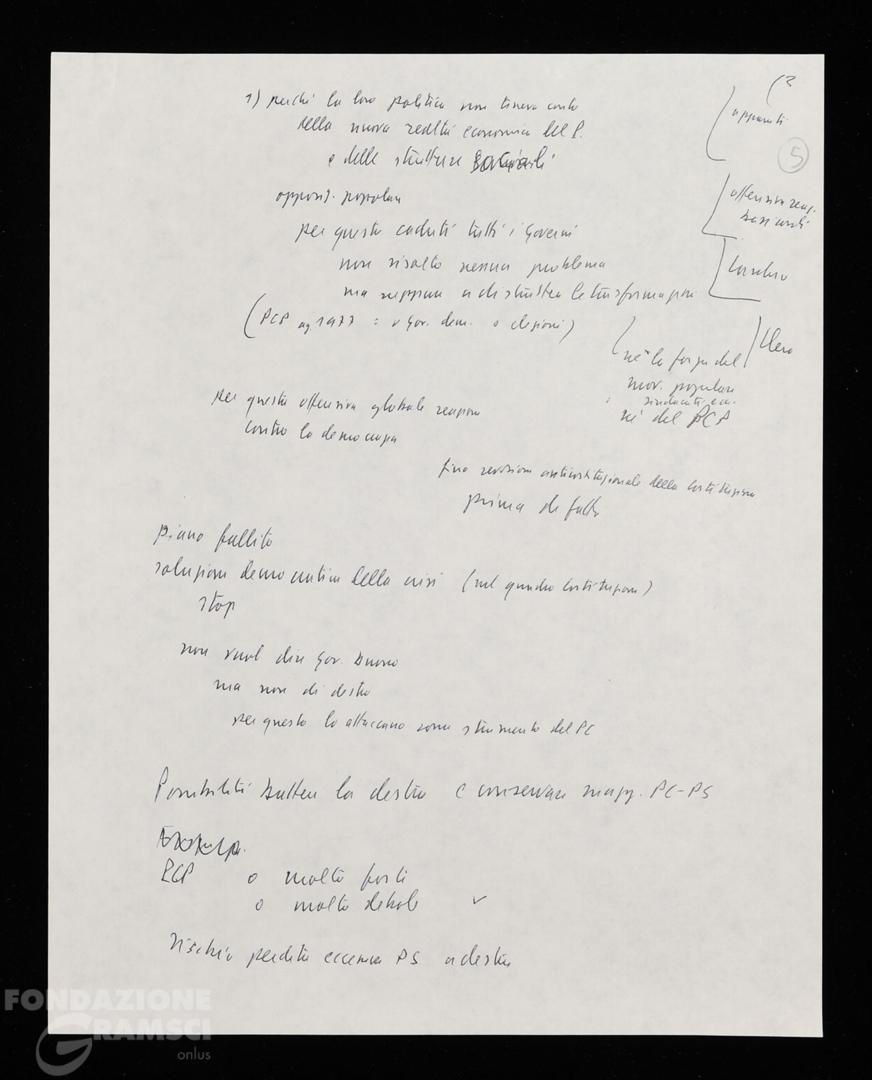 (3
5
1) perché la loro politica non teneva conto
della nuova realtà economica del P.
e delle strutture sociali
opposiz. popolare
per questo caduti tutti i Governi
non risolto nessun problema
ma neppure a distrutto le trasformazioni
(PCP ag 1977 = o Gov. dem. o elezioni)
apparati
offensiva reaz.
clero
né la forza del
mov. popolare
sindacati ecc.
né del PCP
per questo offensiva globale reazion
contro la democrazia
fino revisione anticostituzionale della Costituzione
prima di fatto
piano fallito
soluzione democratica della crisi (nel quadro Costituzione)
stop
non vuol dire Gov. buono
ma non di destra
per questo lo attaccano come strumento del PC
Possibilità battere la destra e conservare magg. PC-PS
PCP o molto forte
o molto debole
rischio perdita PS a destra
FONDAZIONE
GRAMSCI
onlus